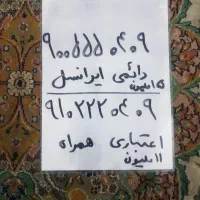 ۹۰۰۵۵۵۰۴۰۹
دائمی ایرانسل
۱۵ ملیون
۹۱۰۲۲۲۰۴۰۹
اعتباری همراه
۱۱ ملیون